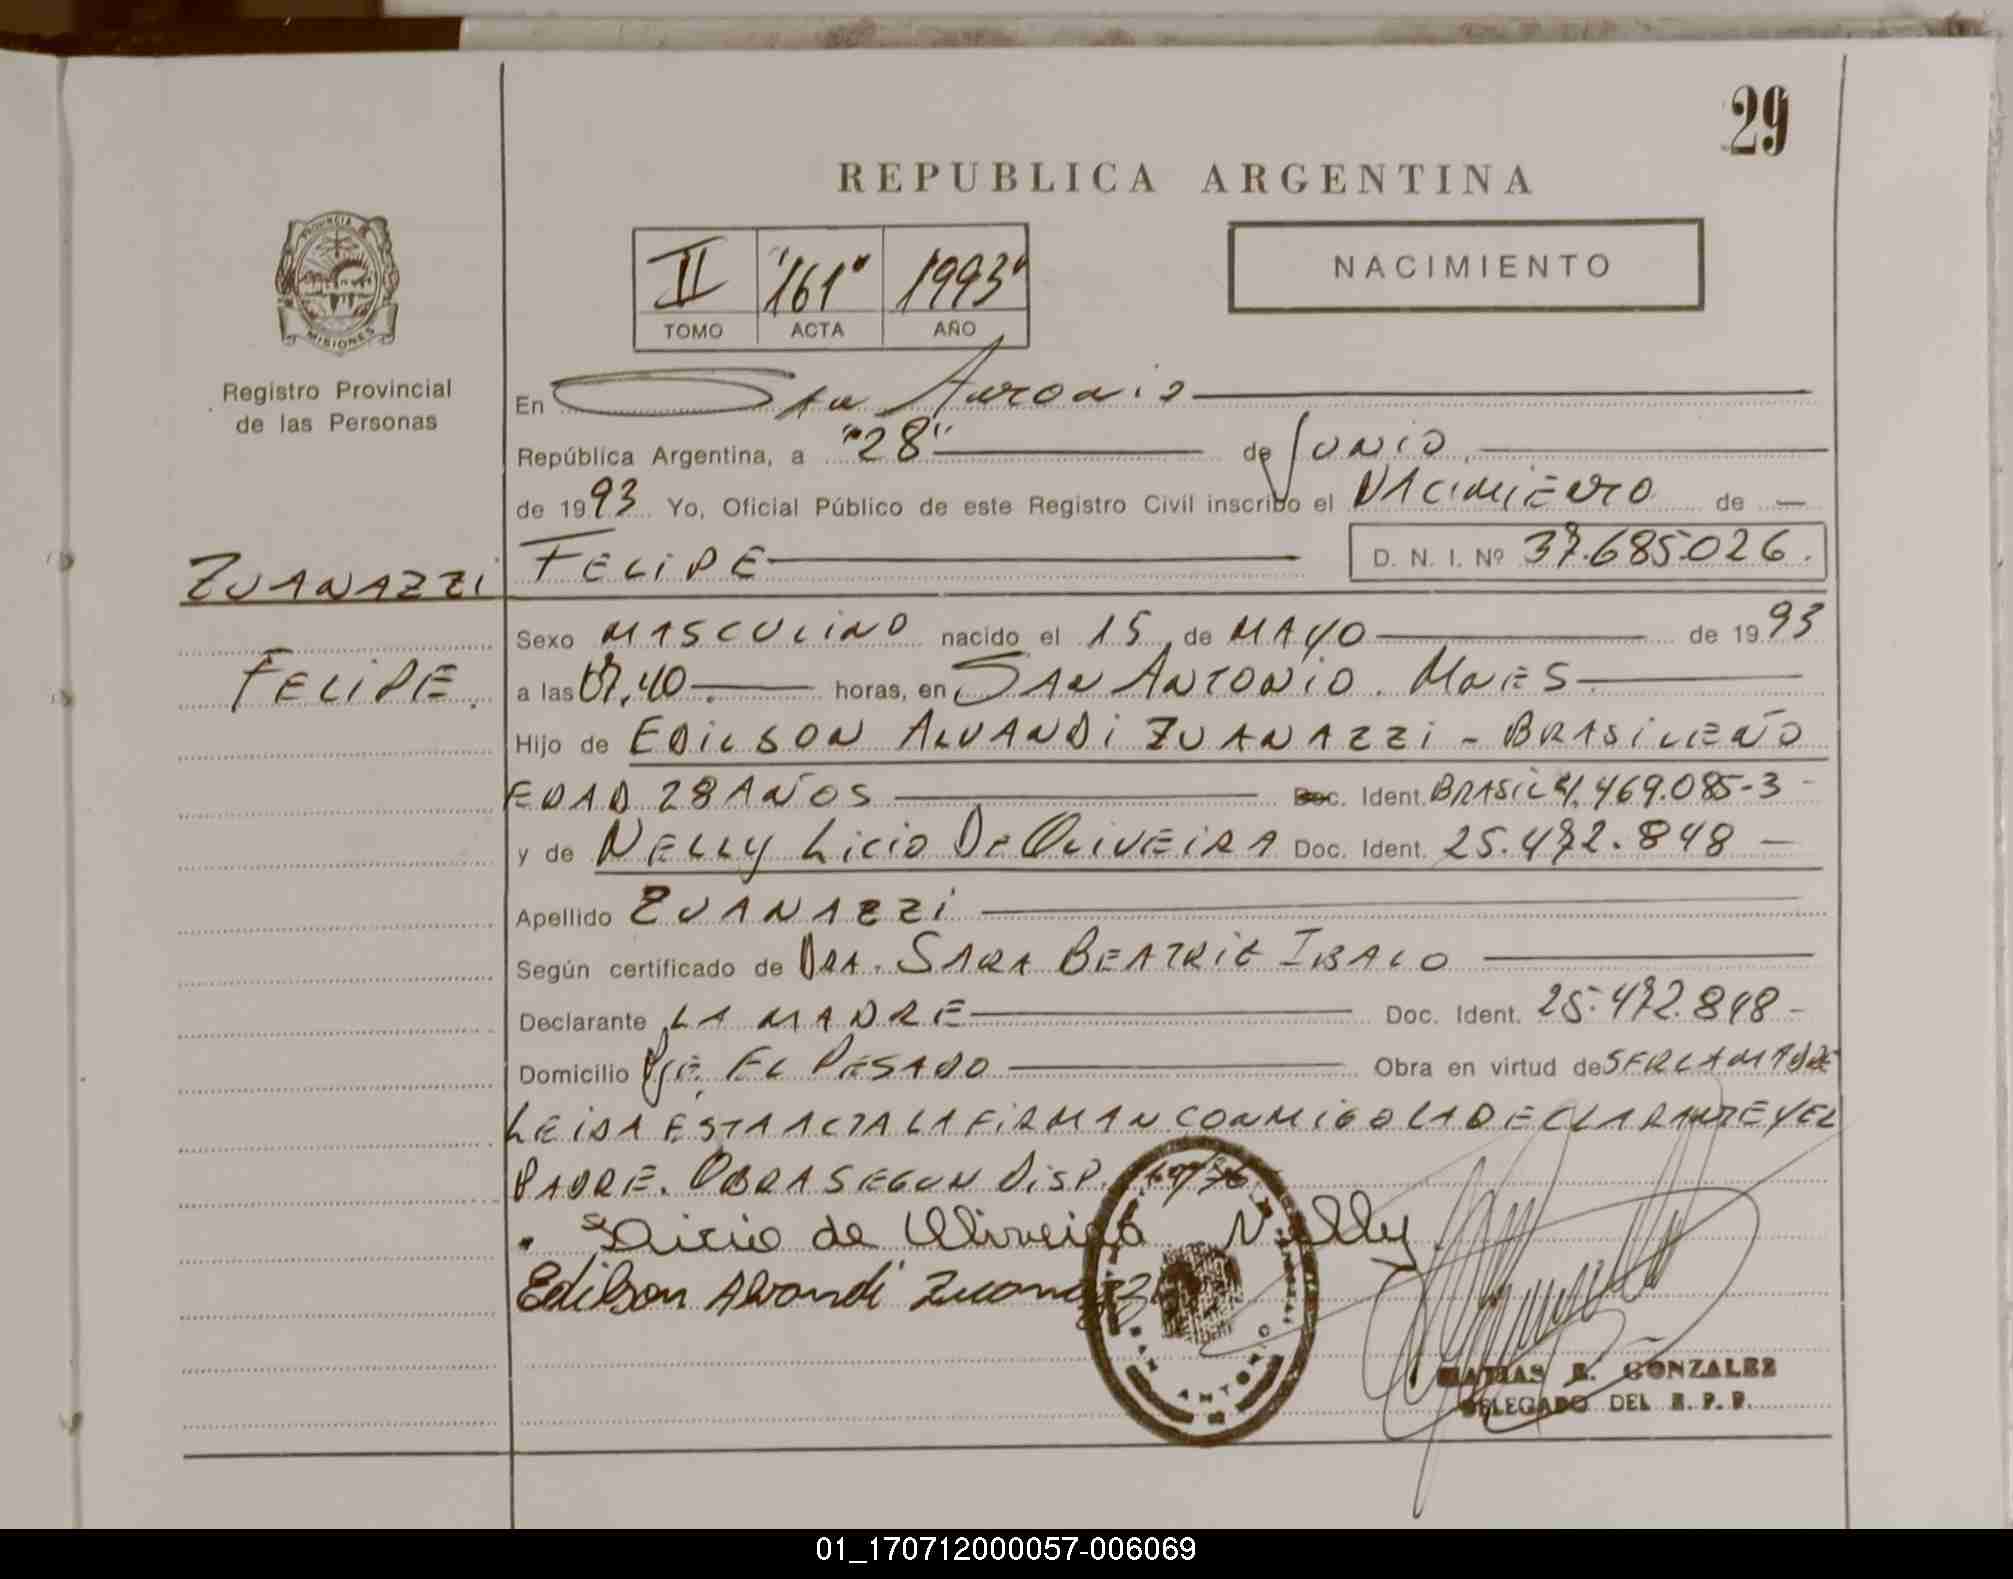 29
REPUBLICA ARGENTINA
PROVINCIA
MISIONES
Registro Provincial
de las Personas
II "161" 1993"
TOMO ACTA AÑO
NACIMIENTO
En San Antonio
República Argentina, a "28" de Junio
de 1993 Yo, Oficial Público de este Registro Civil inscribo el NACIMIENTO de
ZUANAZZI FELIPE D. N. I. Nº 37.685.026.
Sexo MASCULINO nacido el 15 de MAYO de 1993
FELIPE. a las 07,40 horas, en SAN ANTONIO. MNES
Hijo de EDILSON ALVANDI ZUANAZZI - BRASILEÑO
EDAD 28 AÑOS Doc. Ident. BRASIL 4.469.085-3
y de NELLY LICIO DE OLIVEIRA Doc. Ident. 25.472.848
Apellido ZUANAZZI
Según certificado de DRA. SARA BEATRIZ IBALO
Declarante LA MADRE Doc. Ident. 25.472.848
Domicilio PJE. EL PESADO Obra en virtud de SER LA MADRE
LEIDA ESTA ACTA LA FIRMAN CONMIGO LA DECLARANTE Y EL
PADRE. OBRA SEGUN DISP.
Licio de Oliveira Nelly
Edilson Alvandi Zuanazzi
SAN ANTONIO
MATIAS E. GONZALEZ
DELEGADO DEL R. P. P.
01_170712000057-006069